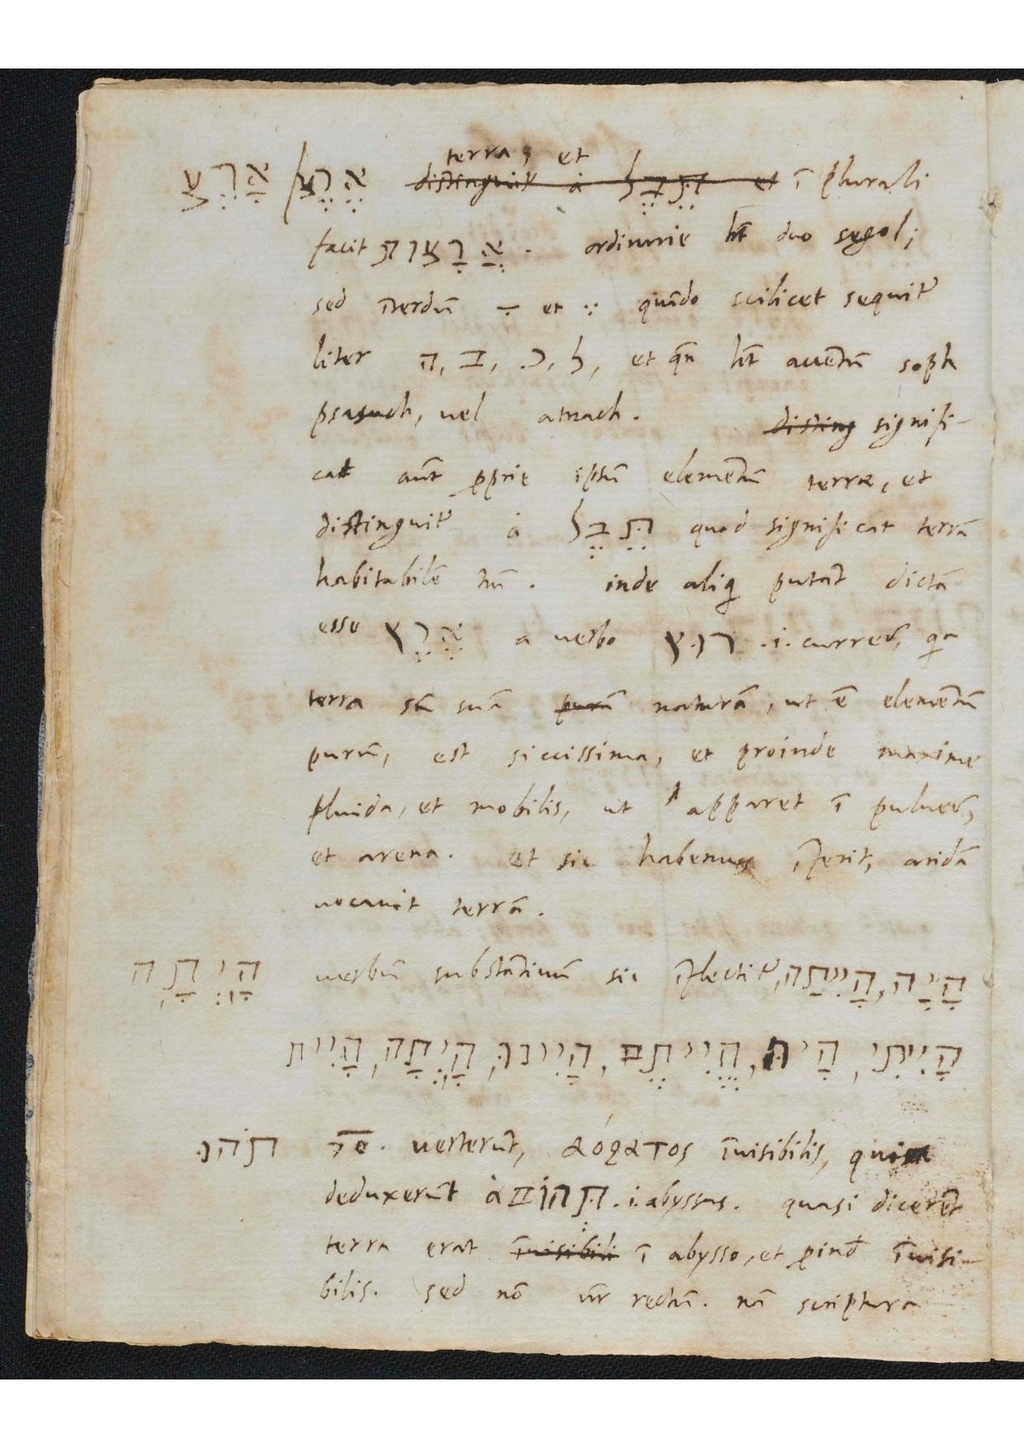 terra, et
אָרֶץ / אֶרֶץ distinguit̃ à תֵּבֵל et ĩ plurali
facit אֲרָצוֹת . ordinarie h̃t duo segol;
sed et quãdo scilicet sequit̃
liter ה, ב, כ, ל, et qñ h̃t accẽtũ soph
psasuch, uel atnach. disting signifi-
cat aũt ꝓprie ipsũ elemẽtũ terræ, et
distinguit̃ à תֵּבֵל quod significat terrã
habitabilẽ tm̃. inde aliq̃ putãt dictã
esse אֶרֶץ a uerbo רוץ .i. currere, q̃a
terra sc̃ suã purũ naturã, ut ẽ elemẽtũ
purũ, est siccissima, et proinde maxime
fluida, et mobilis, ut apparet ĩ puluere,
et arena. et sic habemus aridã
uocauit terrã.
הָיְתָה uerbũ substãtiuũ sic ĩflectit̃ הָיָה, הָיִיתָה,
הָיִיתִי, הָיוּ, הֱיִיתֶם, הָיִינוּ, הָיְתָה, הָיִית
תֹהוּ uerterũt, ἀόρατος ĩuisibilis, quia
deduxerũt à תְּהוֹם .i. abyssus. quasi dicerẽt
terra erat ĩuisibili ĩ abysso, et ꝓind̃ ĩuisi-
bilis. sed nõ ur̃ rectũ. nã scriptura